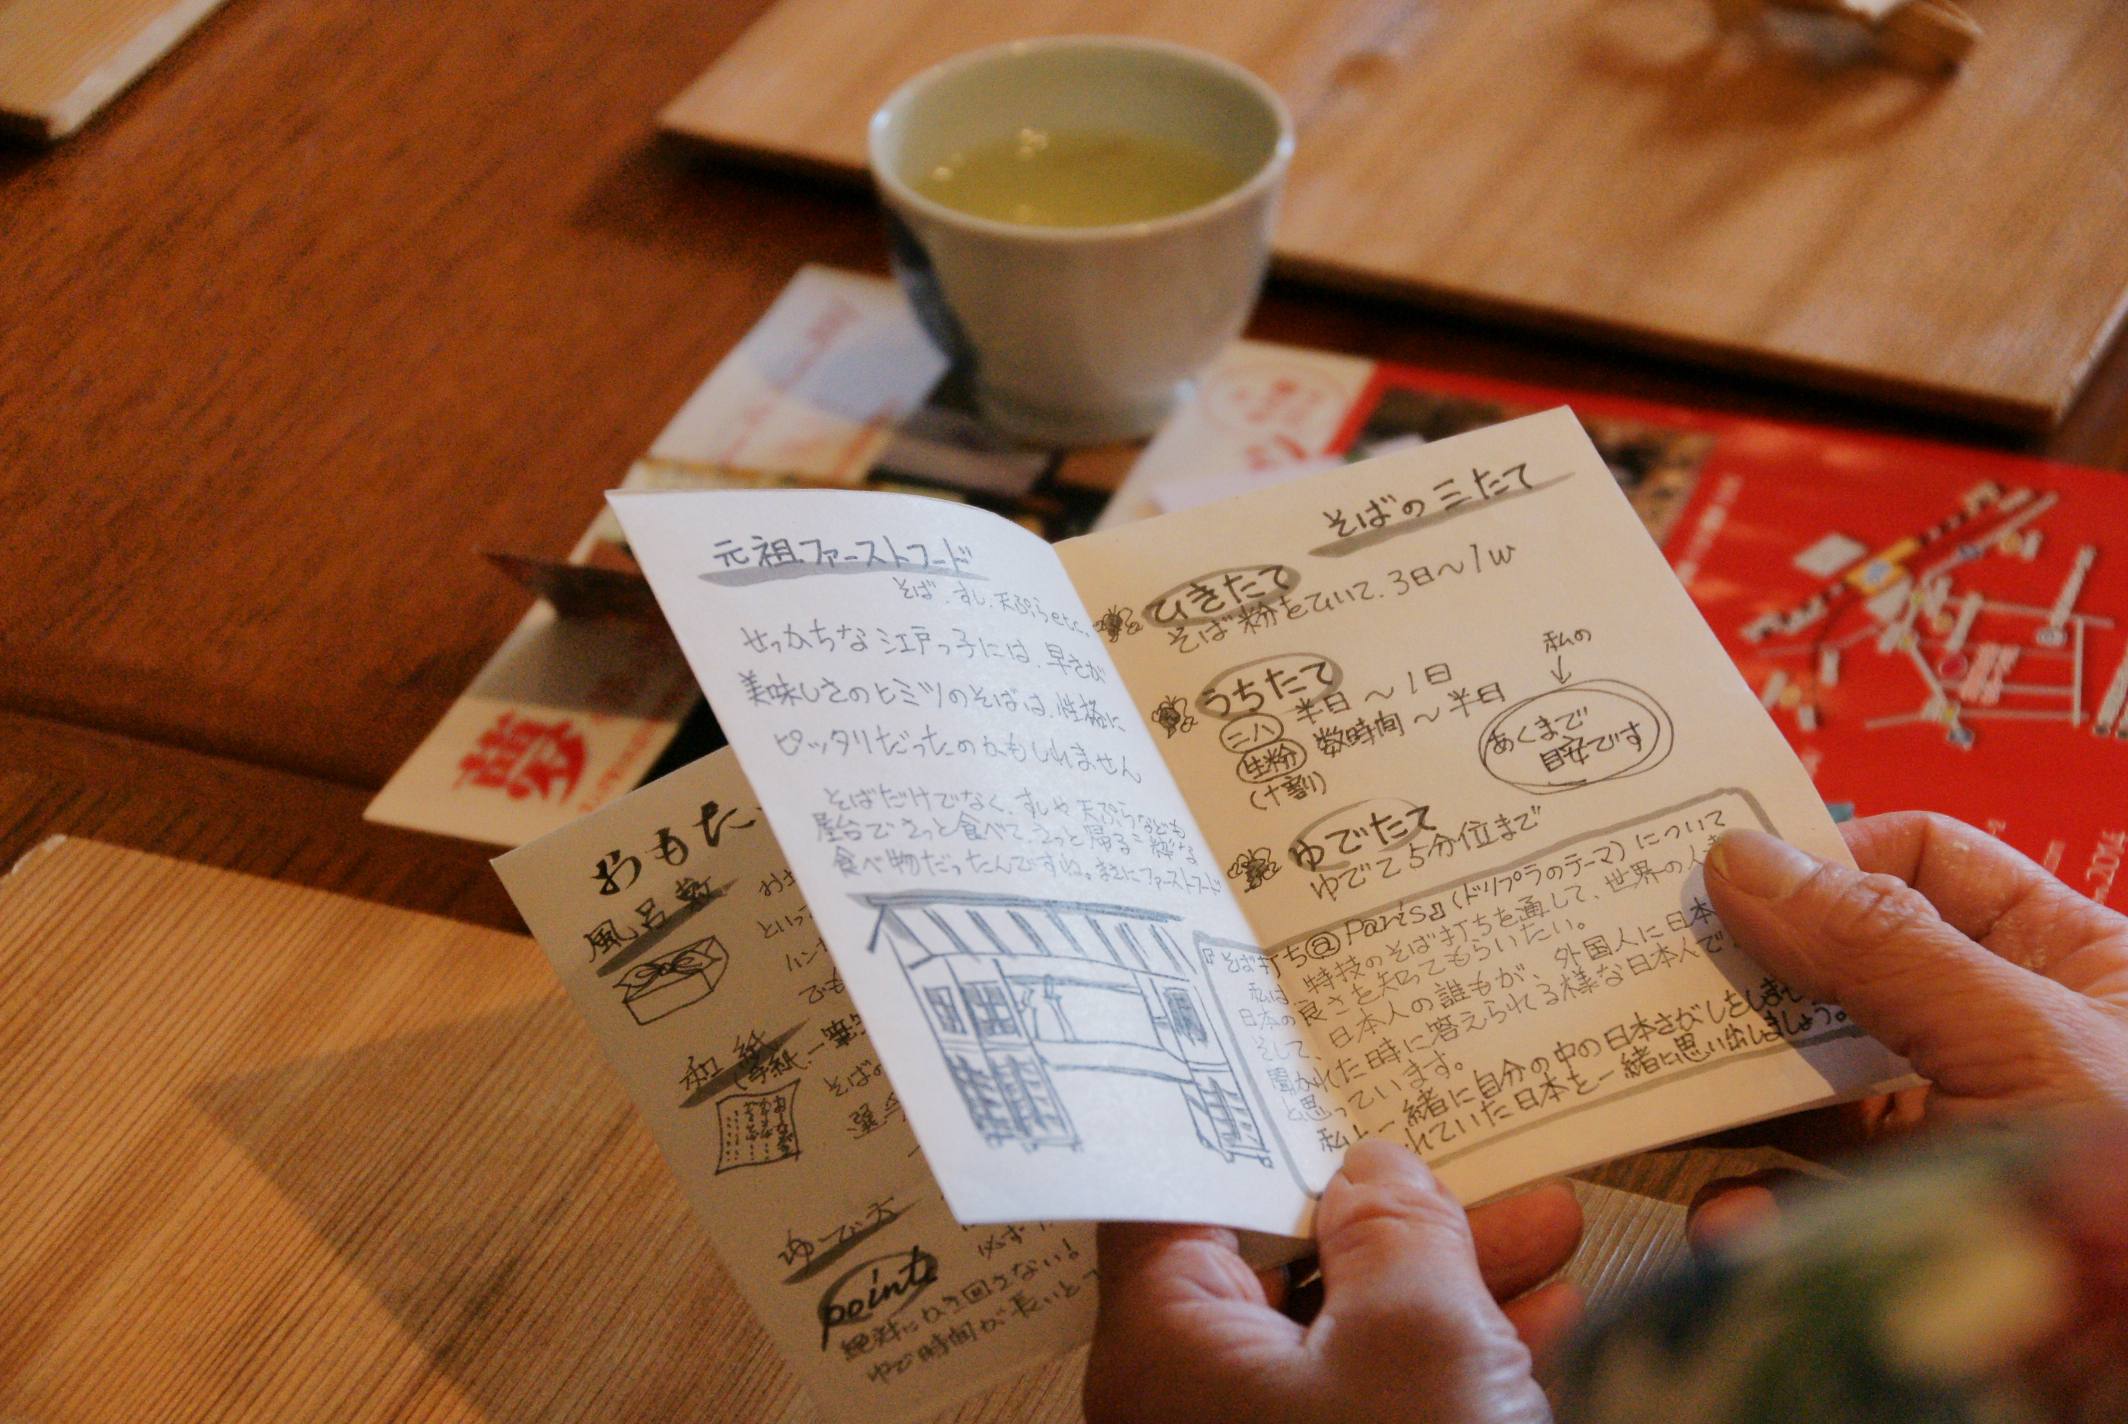 元祖ファーストフード
そば、すし、天ぷらetc.
せっかちな江戸っ子には、早さが
美味しさのヒミツのそばは、性格に
ピッタリだったのかもしれません
そばだけでなく、すしや天ぷらなども
屋台でさっと食べて、さっと帰る粋な
食べ物だったんですね。まさにファーストフード
そばの三たて
ひきたて
そば粉をひいて、3日〜1w
うちたて
二八 半日〜1日
生粉 数時間〜半日
(十割)
私の
↓
あくまで
目安です
ゆでたて
ゆでて5分位まで
『そば打ち@Paris』(ドリプラのテーマ)について
私は、特技のそば打ちを通して、世界の人
日本の良さを知ってもらいたい。
そして、日本人の誰もが、外国人に日本
聞かれた時に答えられる様な日本人で
と思っています。
私と一緒に自分の中の日本さがしをしませ
れていた日本を一緒に思い出しましょう。
おもた
風呂敷
和紙
(手紙、一筆
そばの
ゆで方
必ず
point
絶対にかき回さない!
ゆで時間が長いと